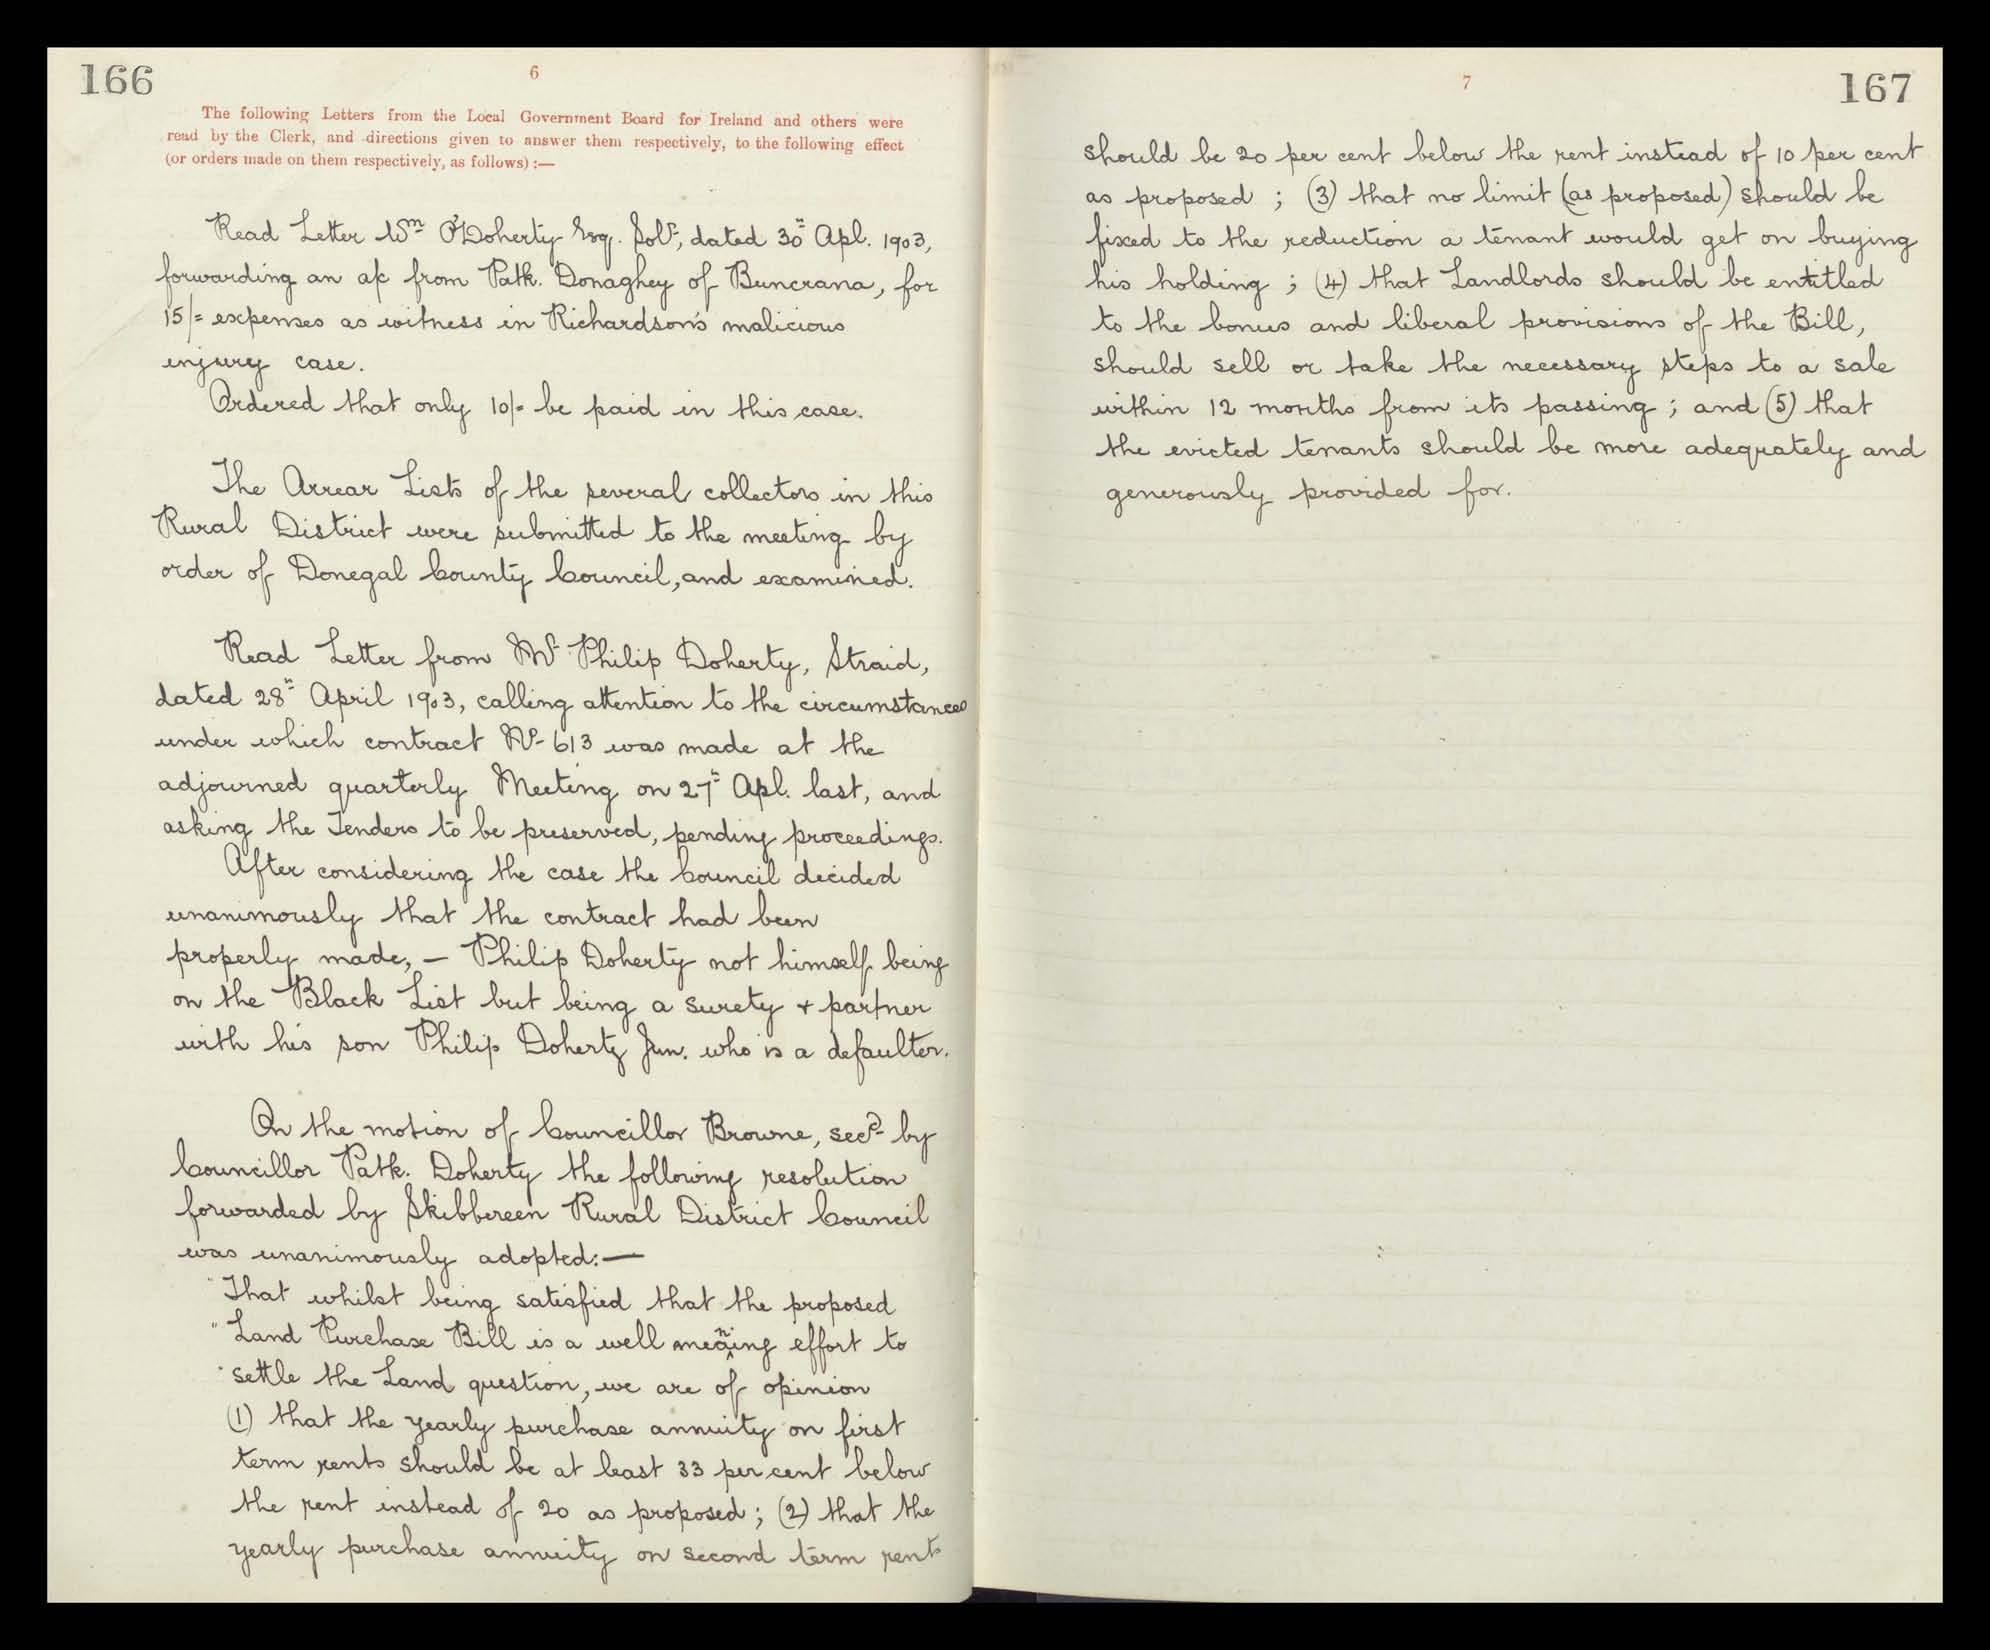 166
6
The following Letters from the Local Government Board for Ireland and others were
read by the Clerk, and directions given to answer them respectively, to the following effect
(or orders made on them respectively, as follows) :—
Read Letter Wm O'Doherty Esq. Solr, dated 30th Apl. 1903,
forwarding an a/c from Patk. Donaghey of Buncrana, for
15/= expenses as witness in Richardson's malicious
injury case.
Ordered that only 10/= be paid in this case.
The Arrear Lists of the several collectors in this
Rural District were submitted to the meeting by
order of Donegal County Council, and examined.
Read Letter from Mr Philip Doherty, Straid,
dated 28th April 1903, calling attention to the circumstances
under which contract No 613 was made at the
adjourned quarterly Meeting on 27th Apl. last, and
asking the Tenders to be preserved, pending proceedings.
After considering the case the Council decided
unanimously that the contract had been
properly made, — Philip Doherty not himself being
on the Black List but being a surety + partner
with his son Philip Doherty Jun. who is a defaulter.
On the motion of Councillor Browne, secd by
Councillor Patk. Doherty the following resolution
forwarded by Skibbereen Rural District Council
was unanimously adopted:—
"That whilst being satisfied that the proposed
"Land Purchase Bill is a well meaning effort to
"settle the Land question, we are of opinion
(1) that the yearly purchase annuity on first
term rents should be at least 33 per cent below
the rent instead of 20 as proposed; (2) that the
yearly purchase annuity on second term rents
7
167
should be 20 per cent below the rent instead of 10 per cent
as proposed ; (3) that no limit (as proposed) should be
fixed to the reduction a tenant would get on buying
his holding ; (4) that Landlords should be entitled
to the bonus and liberal provisions of the Bill,
should sell or take the necessary steps to a sale
within 12 months from its passing ; and (5) that
the evicted tenants should be more adequately and
generously provided for.